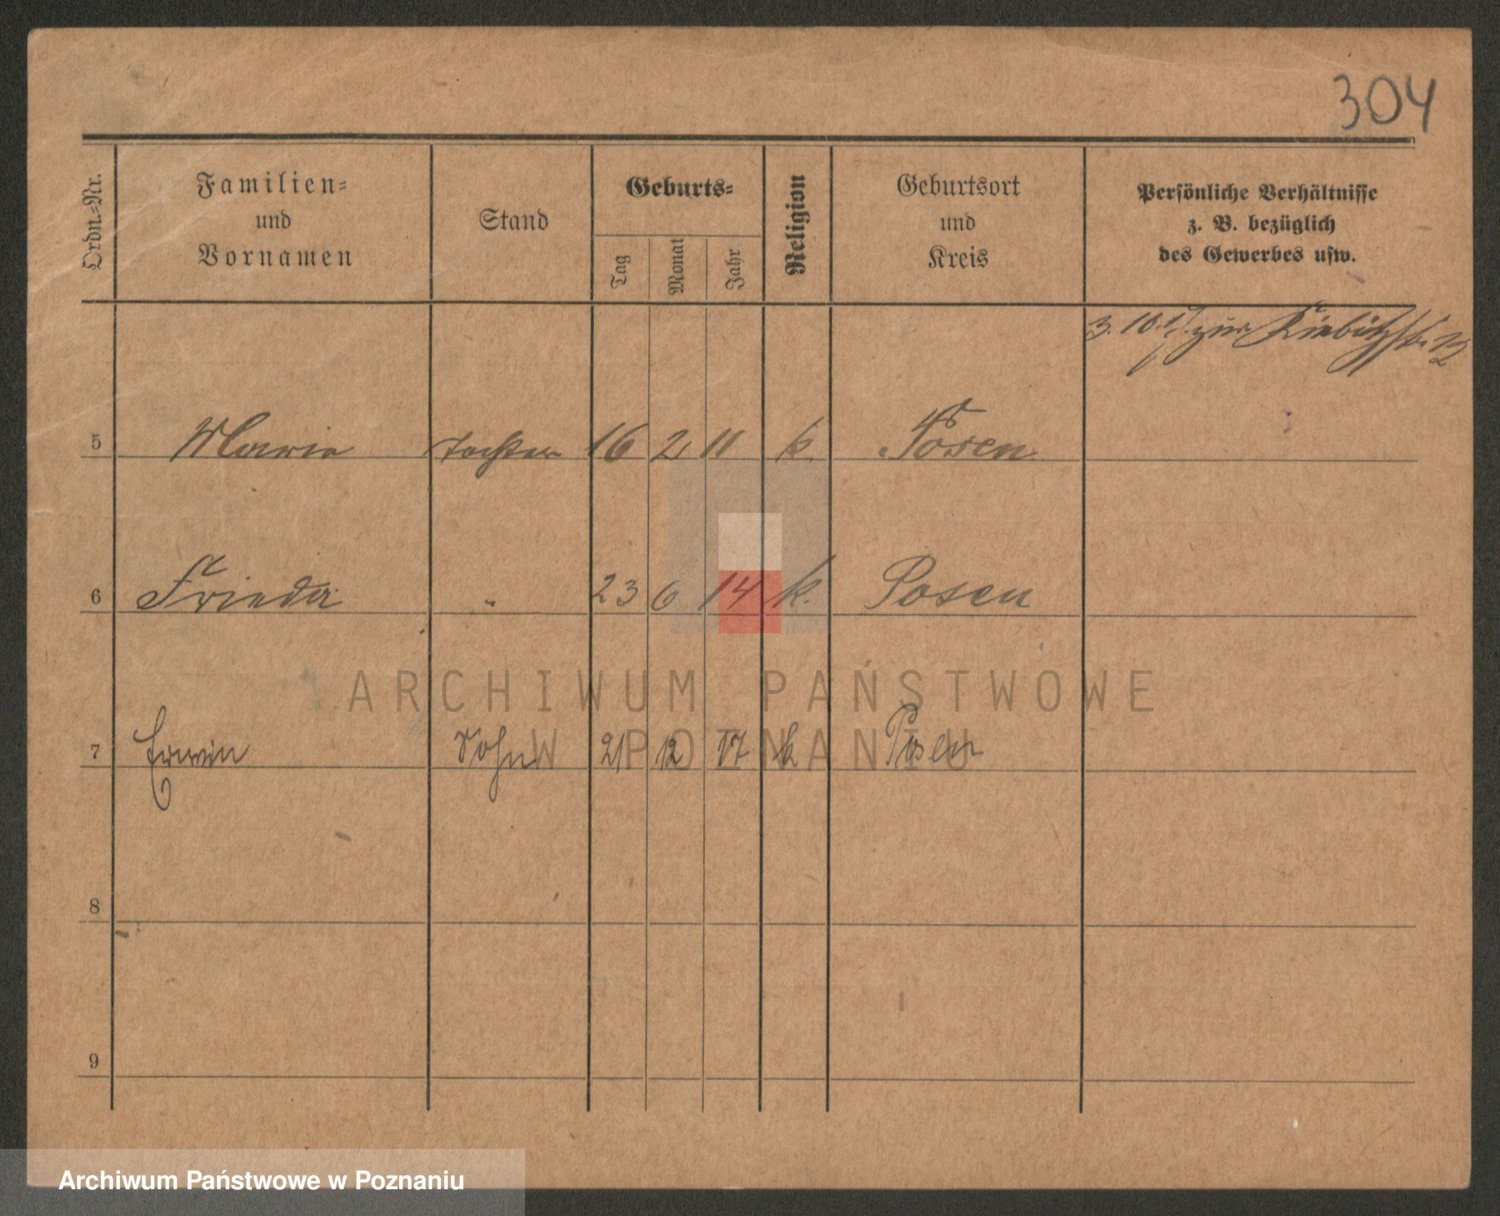 304
Ordn.-Nr.
Familien-
und
Vornamen
Stand
Geburts-
Tag
Monat
Jahr
Religion
Geburtsort
und
Kreis
Persönliche Verhältnisse
z. B. bezüglich
des Gewerbes usw.
3. 10. 17. zur Kiebitzstr. 12
5 Maria Tochter 16 2 11 k. Posen
6 Frieda " 23 6 14 k. Posen
7 Erwin Sohn 21 12 17 k Posen
8
9
ARCHIWUM PAŃSTWOWE
W POZNANIU
Archiwum Państwowe w Poznaniu